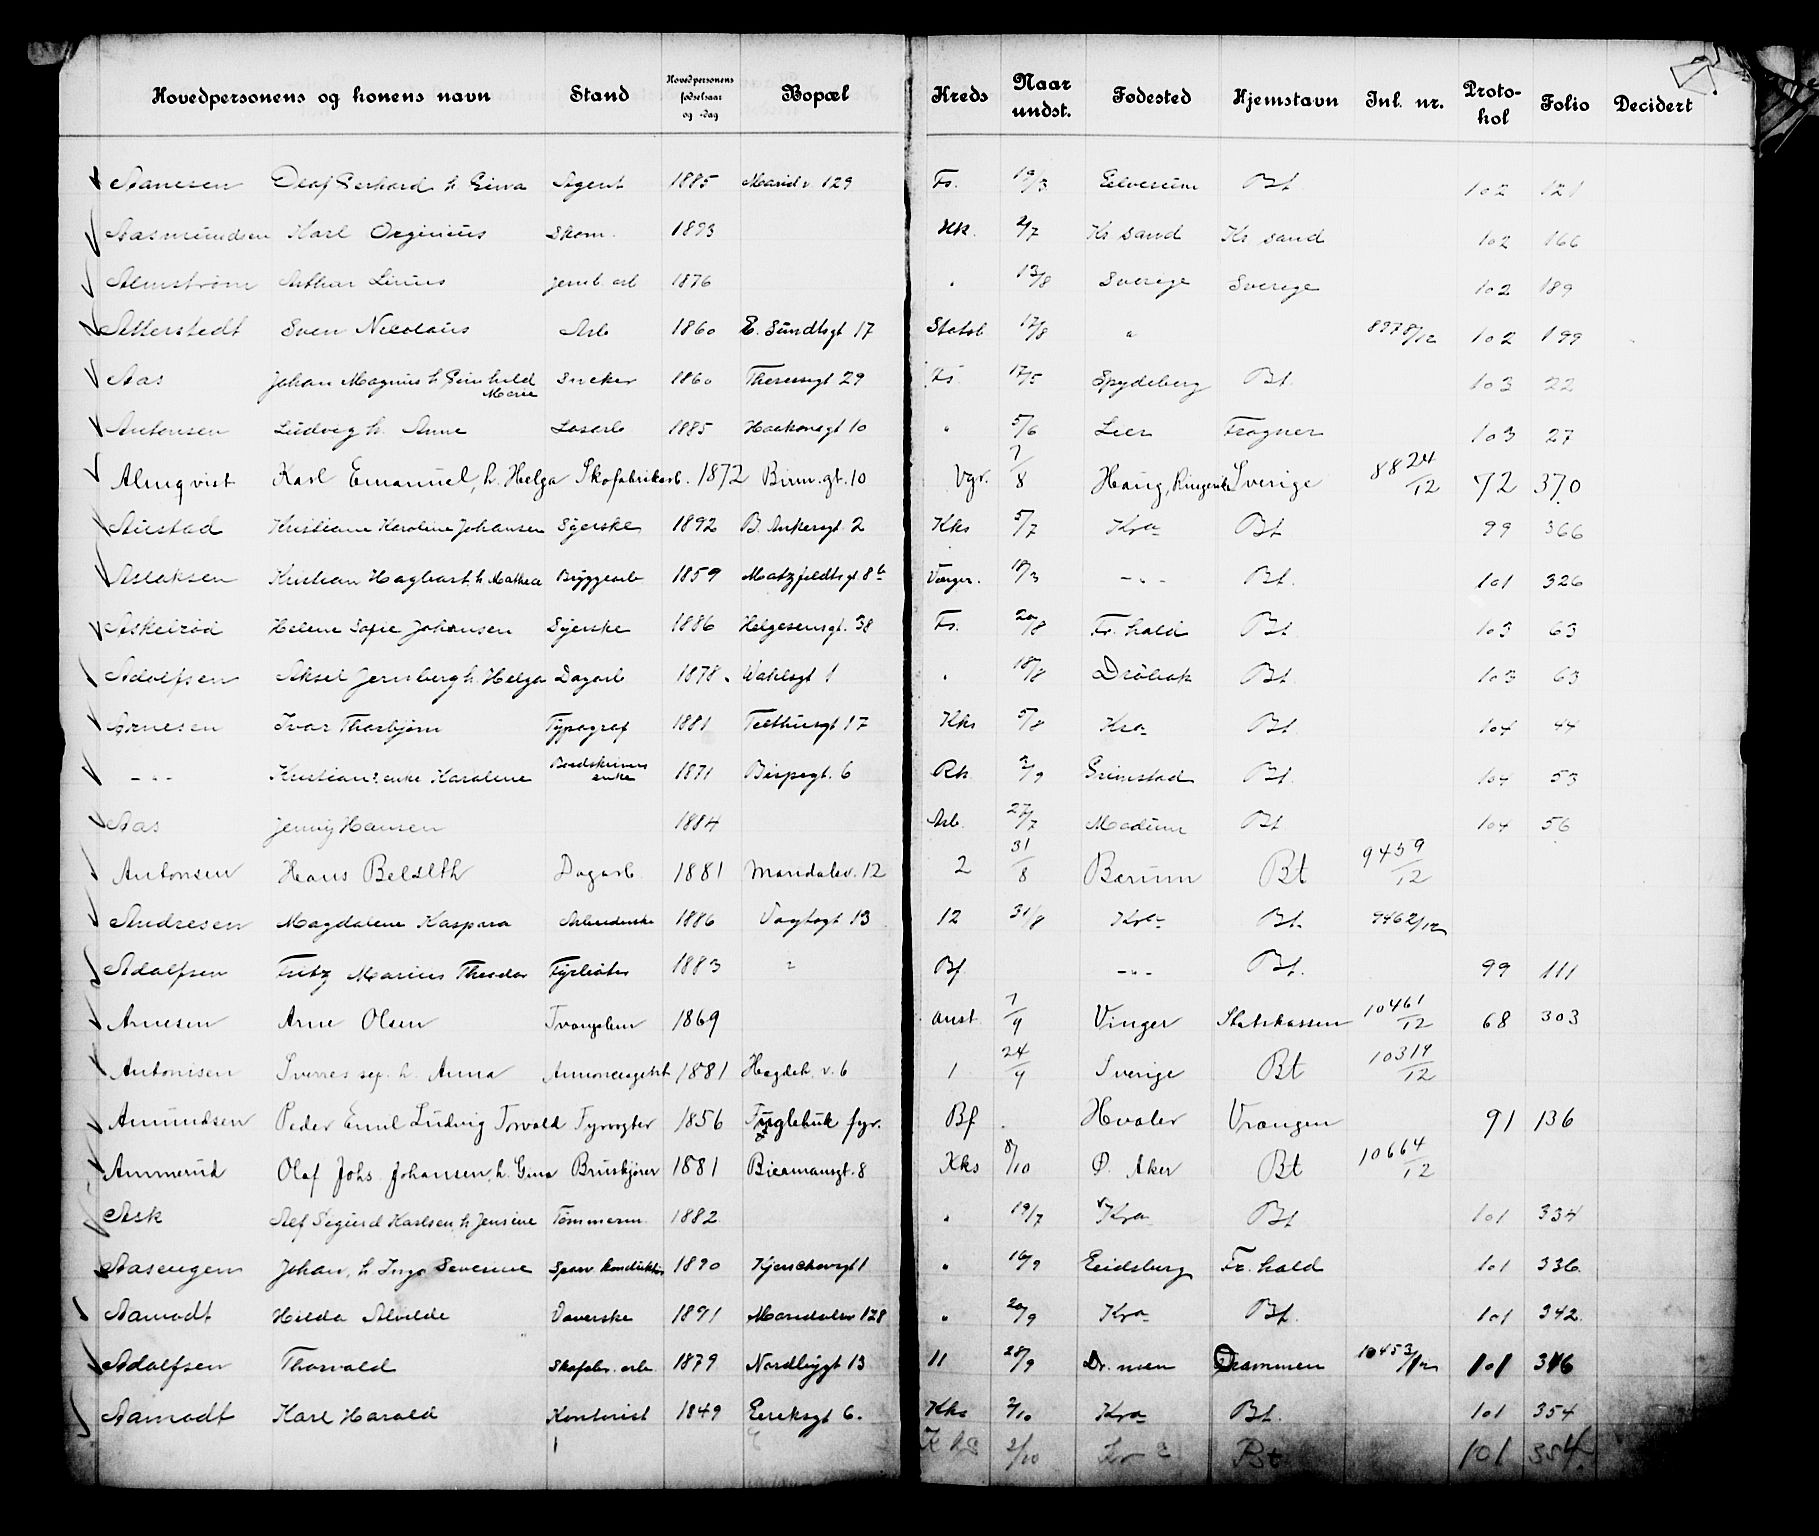 Hovedpersonens og konens navn Stand Hovedpersonens fødselsaar og -dag Bopæl Kreds Naar undst. Fødested Hjemstavn Inl. nr. Proto-kol Folio Decidert
Aanesen Olaf Gerhard h. Agent 1885 Marid v. 129 Fs. 19/3 Elverum Bt. 102 121
Aasmundsen Karl Orginius Skom. 1893 Kk. 2/7 Kr sand Kr sand 102 166
Almstrøm Arthur Linus Jernb. arb 1876 " 13/8 Sverige Sverige 102 189
Atterstedt Sven Nicolaus Arb 1860 E. Sundtsgt 17 Statsb 17/8 " 8978/12 102 199
Aas Johan Magnus h. Gunhild Marie Sneker 1860 Theresegt 29 Fs. 17/5 Spydeberg Bt. 103 22
Antonsen Ludvig h. Anne Løsarb 1885 Haakonsgt 10 " 5/6 Lier Frogner 103 27
Almqvist Karl Emanuel, h. Helga Skofabrikarb. 1872 Birm.gt. 10 Vgr. 7/8 Haug, Ringerike Sverige 8824/12 72 370
Austad Kristiane Karoline Johansen Syerske 1892 B. Ankersgt. 2 Kks 5/7 Kra Bt 99 366
Aslaksen Kristian Hagbart h. Mathea Bryggearb 1859 Motzfeldtsgt 8b Værger. 18/3 -"- Bt. 101 326
Askelrød Helene Sofie Johansen Syerske 1886 Helgesensgt. 38 Fs. 20/8 Fr. hald Bt 103 63
Adolfsen Aksel Jernsberg h. Helga Dagarb 1878 Wahlsgt 1 " 18/8 Drøbak Bt. 103 63
Arnesen Ivar Thorbjørn Typograf 1881 Telthusgt 17 Kks 5/8 Kra Bt 104 44
-"- Kristians enke Karoline enke 1871 Bispegt. 6 Rk 2/9 Grimstad Bt. 104 53
Aas Jenny Hansen 1884 Arb. 27/7 Modum Bt 104 56
Antonsen Hans Dagarb. 1881 Maridalsv. 12 2 31/8 Bærum Bt 9459/12
Andresen Magdalene Kaspara Arbeiderske 1886 Vogtsgt 13 12 31/8 Kra Bt. 9462/12
Adolfsen Fritz Marius Theodor Fyrbøter 1883 " Bf -"- Bt. 99 111
Arnesen Arne Olsen Tvangslem 1869 anst. 7/9 Vinger Statskassen 10461/12 68 303
Antonisen Sverres sep. h. Anna Annonceagent 1881 Hegdeh. v. 6 1 24/9 Sverige Bt 10319/12
Amundsen Peder Emil Ludvig Torvald Fyrvogter 1856 Fuglehuk fyr. Bf . Hvaler Vrangen 91 136
Ammerud Olaf Johs. Johansen, h. Gina Bruskjører 1881 Biermansgt. 8 Kks 8/10 Ø. Aker Bt 10664/12
Ask Alf Sigurd Karlsen h. Jensine Tømmerm. 1882 " 19/7 Kra Bt 101 334
Aasengen Johan, h. Inga Severine Sporv. konduktør 1890 Kjerschowsgt 1 " 16/9 Eidsberg Fr. hald 101 336
Aamodt Hilda Alvilde Væverske 1891 Maridalsv 128 " 20/9 Kra Bt. 101 342
Adolfsen Thorvald Skofabr. arb 1879 Nordbygt 13 11 28/9 Dr. men Drammen 10453/12 101 346
Aamodt Karl Harald Kontorist 1849 Eeriksgt 6. Kks 2/10 Kra Bt. 101 354
Kks 2/10 Kr a Bt 101 354.